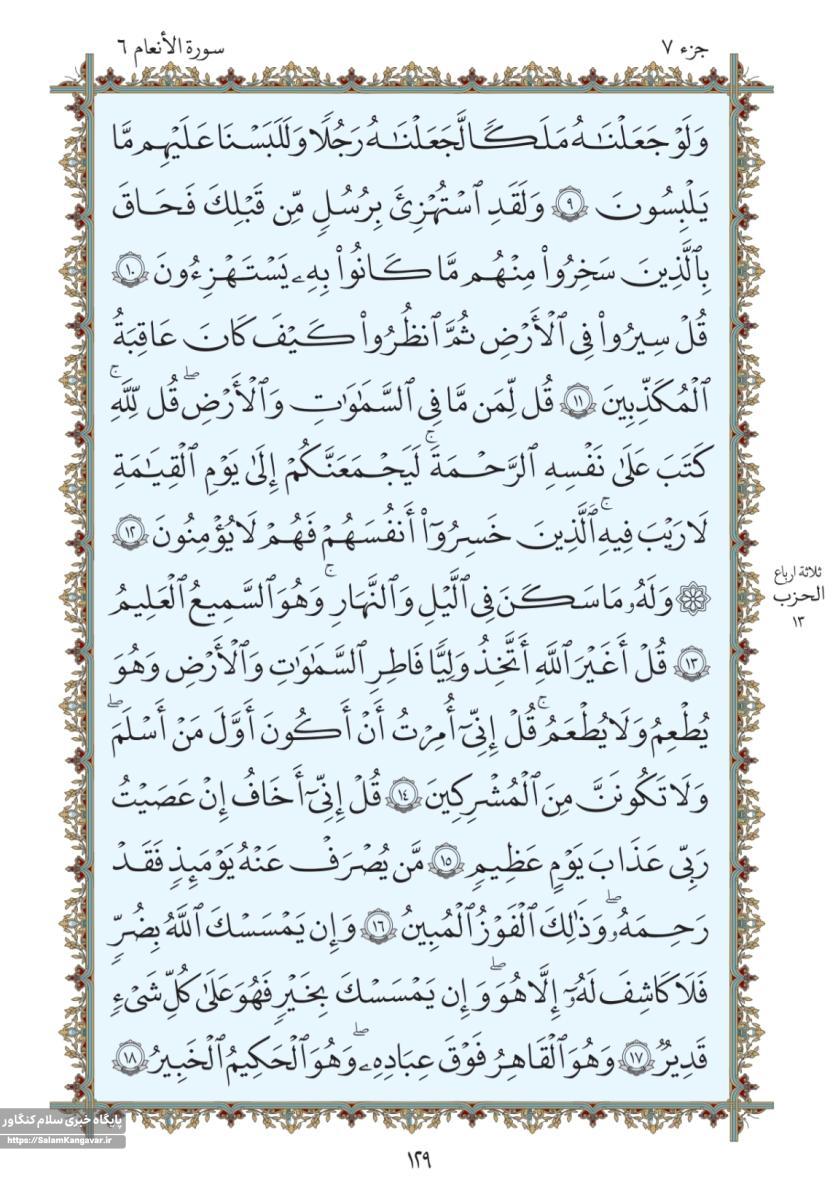 جزء ٧
سورة الأنعام ٦
وَلَوْ جَعَلْنَٰهُ مَلَكًا لَّجَعَلْنَٰهُ رَجُلًا وَلَلَبَسْنَا عَلَيْهِم مَّا
يَلْبِسُونَ ٩ وَلَقَدِ ٱسْتُهْزِئَ بِرُسُلٍ مِّن قَبْلِكَ فَحَاقَ
بِٱلَّذِينَ سَخِرُوا۟ مِنْهُم مَّا كَانُوا۟ بِهِۦ يَسْتَهْزِءُونَ ١٠
قُلْ سِيرُوا۟ فِى ٱلْأَرْضِ ثُمَّ ٱنظُرُوا۟ كَيْفَ كَانَ عَاقِبَةُ
ٱلْمُكَذِّبِينَ ١١ قُل لِّمَن مَّا فِى ٱلسَّمَٰوَٰتِ وَٱلْأَرْضِ ۖ قُل لِّلَّهِ ۚ
كَتَبَ عَلَىٰ نَفْسِهِ ٱلرَّحْمَةَ ۚ لَيَجْمَعَنَّكُمْ إِلَىٰ يَوْمِ ٱلْقِيَٰمَةِ
لَا رَيْبَ فِيهِ ۚ ٱلَّذِينَ خَسِرُوٓا۟ أَنفُسَهُمْ فَهُمْ لَا يُؤْمِنُونَ ١٢
ثلاثة ارباع
الحزب
١٣
۞ وَلَهُۥ مَا سَكَنَ فِى ٱلَّيْلِ وَٱلنَّهَارِ ۚ وَهُوَ ٱلسَّمِيعُ ٱلْعَلِيمُ
١٣ قُلْ أَغَيْرَ ٱللَّهِ أَتَّخِذُ وَلِيًّا فَاطِرِ ٱلسَّمَٰوَٰتِ وَٱلْأَرْضِ وَهُوَ
يُطْعِمُ وَلَا يُطْعَمُ ۗ قُلْ إِنِّىٓ أُمِرْتُ أَنْ أَكُونَ أَوَّلَ مَنْ أَسْلَمَ ۖ
وَلَا تَكُونَنَّ مِنَ ٱلْمُشْرِكِينَ ١٤ قُلْ إِنِّىٓ أَخَافُ إِنْ عَصَيْتُ
رَبِّى عَذَابَ يَوْمٍ عَظِيمٍ ١٥ مَّن يُصْرَفْ عَنْهُ يَوْمَئِذٍ فَقَدْ
رَحِمَهُۥ ۖ وَذَٰلِكَ ٱلْفَوْزُ ٱلْمُبِينُ ١٦ وَإِن يَمْسَسْكَ ٱللَّهُ بِضُرٍّ
فَلَا كَاشِفَ لَهُۥٓ إِلَّا هُوَ ۖ وَإِن يَمْسَسْكَ بِخَيْرٍ فَهُوَ عَلَىٰ كُلِّ شَىْءٍ
قَدِيرٌ ١٧ وَهُوَ ٱلْقَاهِرُ فَوْقَ عِبَادِهِۦ ۖ وَهُوَ ٱلْحَكِيمُ ٱلْخَبِيرُ ١٨
پایگاه خبری سلام کنگاور
https://SalamKangavar.ir
١٢٩